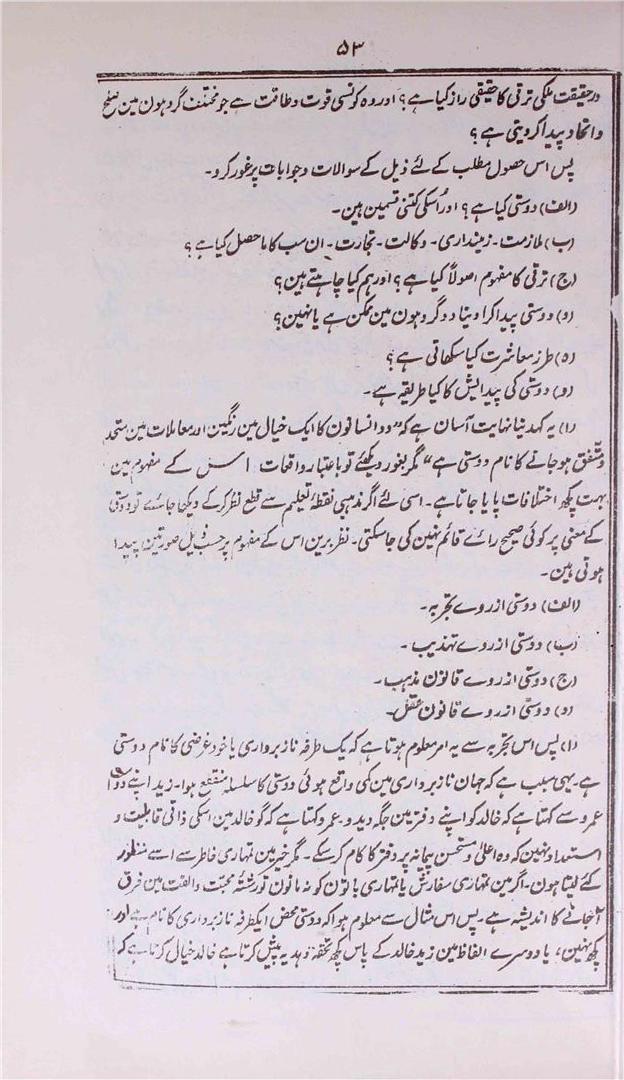 ۵۳
درحقیقت ملکی ترقی کا حقیقی راز کیا ہے؟ اور وہ کونسی قوت و طاقت ہے جو مختلف گروہون مین صلح
و اتحاد پیدا کر دیتی ہے؟
پس اس حصول مطلب کے لئے ذیل کے سوالات و جوابات پر غور کرو۔
(الف) دوستی کیا ہے؟ اور اُسکی کتنی قسمین ہین۔
(ب) ملازمت۔ زمینداری۔ وکالت۔ تجارت۔ ان سب کا ماحصل کیا ہے؟
(ج) ترقی کا مفہوم اصولاً کیا ہے؟ اور ہم کیا چاہتے ہین؟
(و) دوستی پیدا کرا دینا دو گروہون مین ممکن ہے یا نہین؟
(ہ) طرز معاشرت کیا سکھاتی ہے؟
(و) دوستی کی پیدایش کا کیا طریقہ ہے۔
(۱) یہ کہدینا نہایت آسان ہے کہ "دو انسانون کا ایک خیال مین رنگین اور معاملات مین متحد
و متفق ہو جانے کا نام دوستی ہے" مگر بغور دیکھئے تو باعتبار واقعات اس کے مفہوم مین
بہت کچھ اختلافات پایا جاتا ہے۔ اسی لئے اگر مذہبی نقطۂ تعلیم سے قطع نظر کر کے دیکھا جائے تو دوستی
کے معنی پر کوئی صحیح رائے قائم نہین کی جا سکتی۔ نظر برین اس کے مفہوم پر حسب ذیل صورتین پیدا
ہوتی ہین۔
(الف) دوستی از روے تجربہ۔
(ب) دوستی از روے تہذیب۔
(ج) دوستی از روے قانون مذہب۔
(و) دوستی از روے قانون عقل۔
(۱) پس اس تجربہ سے یہ امر معلوم ہوتا ہے کہ یک طرفہ ناز برداری یا خود غرضی کا نام دوستی
ہے۔ یہی سبب ہے کہ جہان ناز برداری مین کمی واقع ہوئی دوستی کا سلسلہ منقطع ہوا۔ زید اپنے دوست
عمرو سے کہتا ہے کہ خالد کو اپنے دفتر مین جگہ دیدو۔ عمرو کہتا ہے کہ گو خالد مین اسکی ذاتی قابلیت و
استعداد نہین کہ وہ اعلیٰ و مستحسن پیمانہ پر دفتر کا کام کر سکے۔ مگر خیر مین تمہاری خاطر سے اسے منظور
کئے لیتا ہون۔ اگر مین تمہاری سفارش یا تمہاری باتون کو نہ مانون تو رشتۂ محبت و الفت مین فرق
آجانے کا اندیشہ ہے۔ پس اس مثال سے معلوم ہوا کہ دوستی محض ایکطرفہ ناز برداری کا نام ہے اور
کچھ نہین، یا دوسرے الفاظ مین زید خالد کے پاس کچھ تحفہ و ہدیہ پیش کرتا ہے خالد خیال کرتا ہے کہ